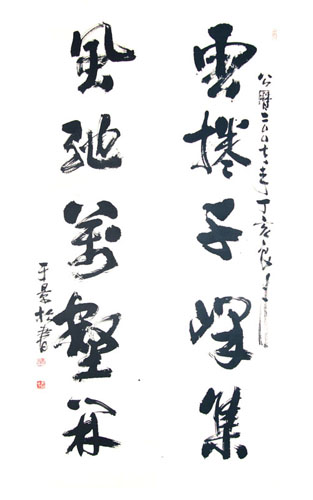 公曆二〇〇七年丁亥良月
雲捲千峰集
風馳萬壑开
于景松書